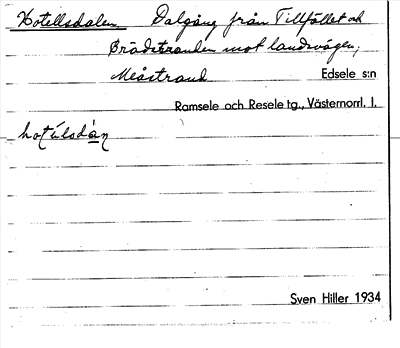 Hotellsdalen Dalgång från Tillfället och
Brädstranden mot landsvägen,
Meåstrand Edsele s:n
Ramsele och Resele tg., Västernorrl. l.
hotúlsdàn
Sven Hiller 1934